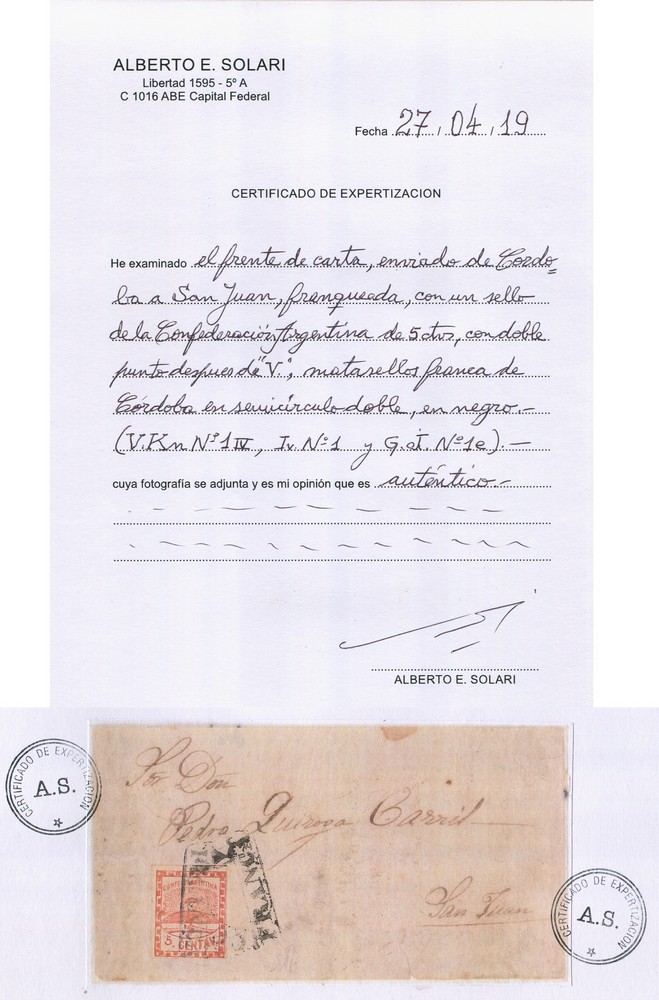 ALBERTO E. SOLARI
Libertad 1595 - 5º A
C 1016 ABE Capital Federal
Fecha 27 / 04 / 19
CERTIFICADO DE EXPERTIZACION
He examinado el frente de carta, enviado de Cordo=
ba a San Juan, franqueada, con un sello
de la Confederación Argentina de 5 ctvs, con doble
punto despues de "V", matasellos franca de
Córdoba en semicírculo doble, en negro.-
(V.Kn Nº 1 IV, Iv. Nº 1 y G.J. Nº 1e).-
cuya fotografía se adjunta y es mi opinión que es auténtico-
ALBERTO E. SOLARI
CERTIFICADO DE EXPERTIZACION
A.S.
Don
Pedro Quiroga Carril
San Juan
5 CENTAV.
CERTIFICADO DE EXPERTIZACION
A.S.